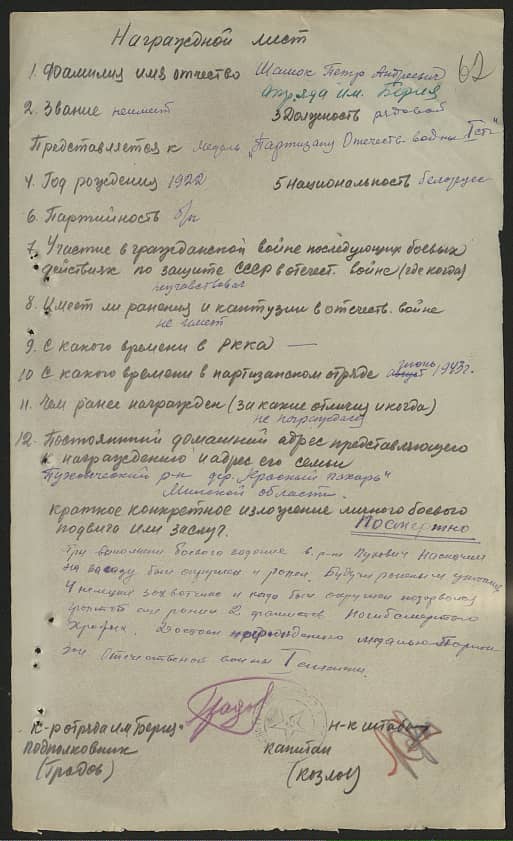 Наградной лист
62
1. Фамилия имя отчество Шашок Петр Андреевич
отряда им. Берия
2. Звание неимеет 3 Должность рядовой
Представляется к медаль „Партизану Отечеств. войны I ст"
4. Год рождения 1922 5 Национальность белорус
6. Партийность б/п
7. Участие в гражданской войне последующих боевых
действиях по защите СССР в отечест. войне (где когда)
неучавствовал
8. Имеет ли ранения и кантузии в отечеств. войне
не имеет
9. С какого времени в РККА —
10 С какого времени в партизанском отряде август июнь 1943г.
11. Чем ранее награжден (за какие отличия и когда)
не награждался
12. Постоянный домашний адрес представляющего
к награждению и адрес его семьи
Пуховический р-н дер. „Красный пахарь"
Минской области.
Краткое конкретное изложение личного боевого
подвига или заслуг. Посмертно
При выполнении боевого задания в р-не Пухович наскочил
на засаду был окружен и ранен. Будучи раненым уничтожил
4 немецких и когда был окружен подорвался
гранатой ранил 2 фашистов. Погиб смертью
храбрых. Достоин награждению медалью Парти
зан Отечественной войны I степени.
к-р отряда им Берия Н-к штаба
подполковник капитан
(Градов) (Козлов)